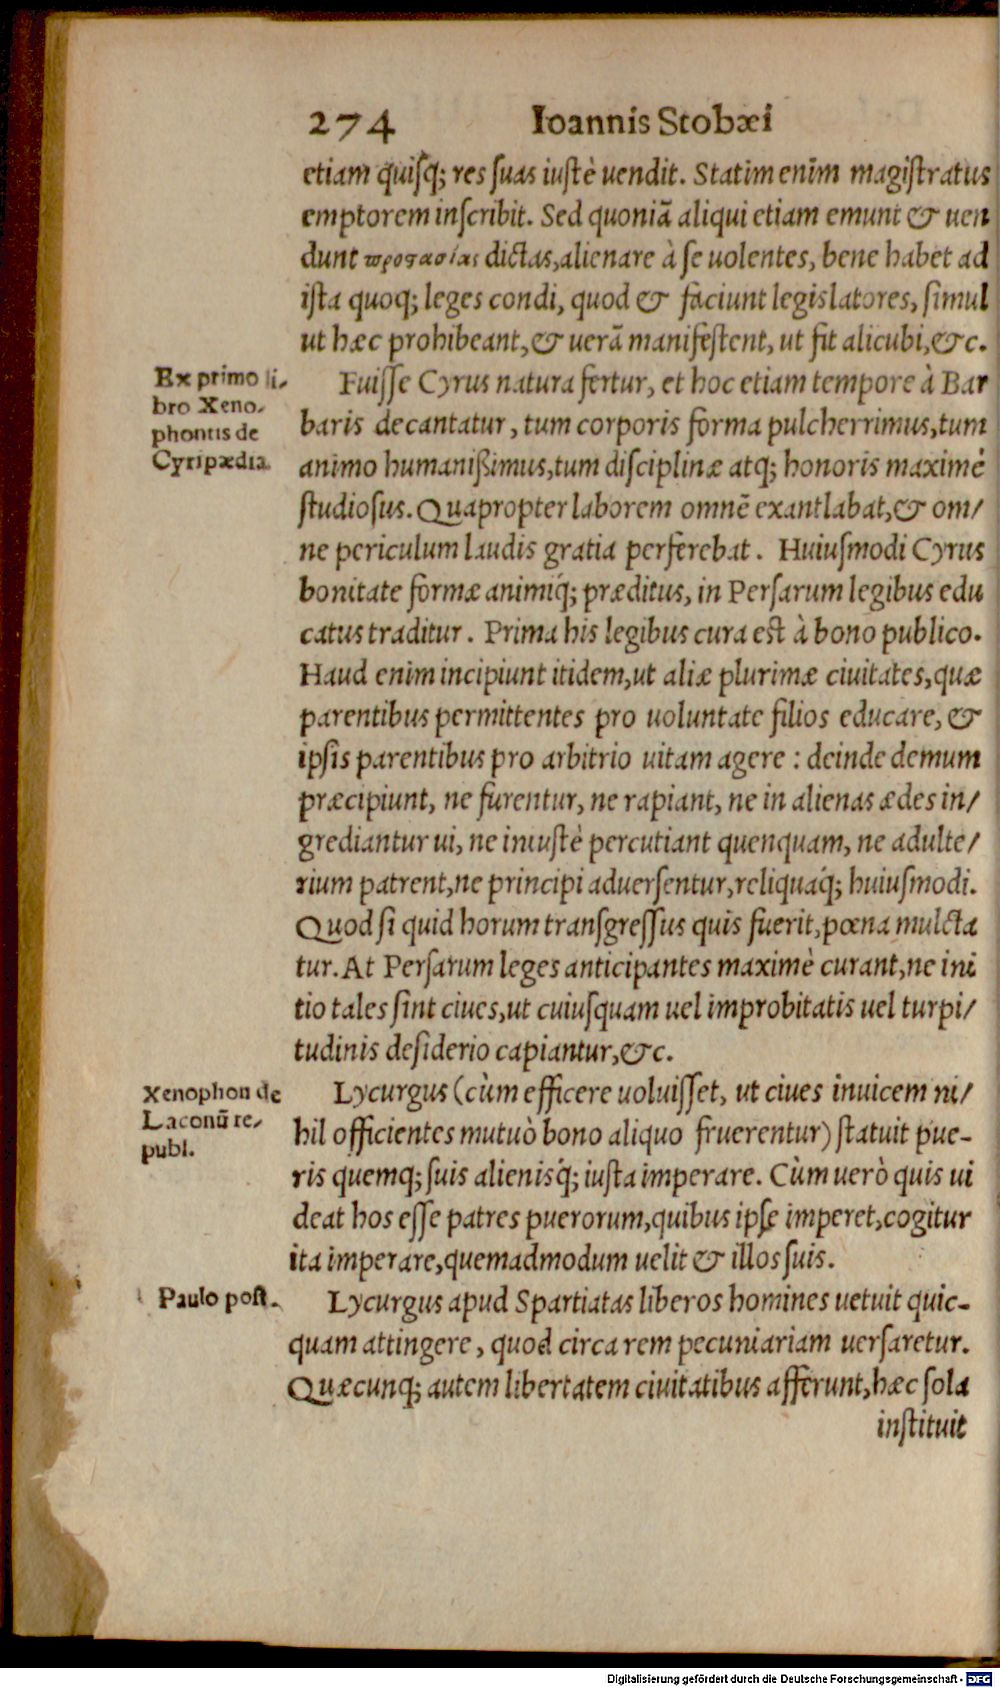 274 Ioannis Stobæi
etiam quisq; res suas iustè uendit. Statim enim magistratus
emptorem inscribit. Sed quoniã aliqui etiam emunt & uen
dunt προστασίας dictas, alienare à se uolentes, bene habet ad
ista quoq; leges condi, quod & faciunt legislatores, simul
ut hæc prohibeant, & uerã manifestent, ut fit alicubi, &c.
Ex primo li-
bro Xeno-
phontis de
Cyripædia.
Fuisse Cyrus natura fertur, et hoc etiam tempore à Bar
baris decantatur, tum corporis forma pulcherrimus, tum
animo humanißimus, tum disciplinæ atq; honoris maximè
studiosus. Quapropter laborem omnẽ exantlabat, & om/
ne periculum laudis gratia perferebat. Huiusmodi Cyrus
bonitate formæ animiq́; præditus, in Persarum legibus edu
catus traditur. Prima his legibus cura est à bono publico.
Haud enim incipiunt itidem, ut aliæ plurimæ ciuitates, quæ
parentibus permittentes pro uoluntate filios educare, &
ipsis parentibus pro arbitrio uitam agere : deinde demum
præcipiunt, ne furentur, ne rapiant, ne in alienas ædes in/
grediantur ui, ne iniustè percutiant quenquam, ne adulte/
rium patrent, ne principi aduersentur, reliquaq́; huiusmodi.
Quod si quid horum transgressus quis fuerit, pœna mulcta
tur. At Persarum leges anticipantes maximè curant, ne ini
tio tales sint ciues, ut cuiusquam uel improbitatis uel turpi/
tudinis desiderio capiantur, &c.
Xenophon de
Laconũ re-
publ.
Lycurgus (cùm efficere uoluisset, ut ciues inuicem ni/
hil officientes mutuò bono aliquo fruerentur) statuit pue-
ris quemq; suis alienisq́; iusta imperare. Cùm uerò quis ui
deat hos esse patres puerorum, quibus ipse imperet, cogitur
ita imperare, quemadmodum uelit & illos suis.
Paulo post.
Lycurgus apud Spartiatas liberos homines uetuit quic-
quam attingere, quod circa rem pecuniariam uersaretur.
Quæcunq; autem libertatem ciuitatibus afferunt, hæc sola
instituit
Digitalisierung gefördert durch die Deutsche Forschungsgemeinschaft - DFG